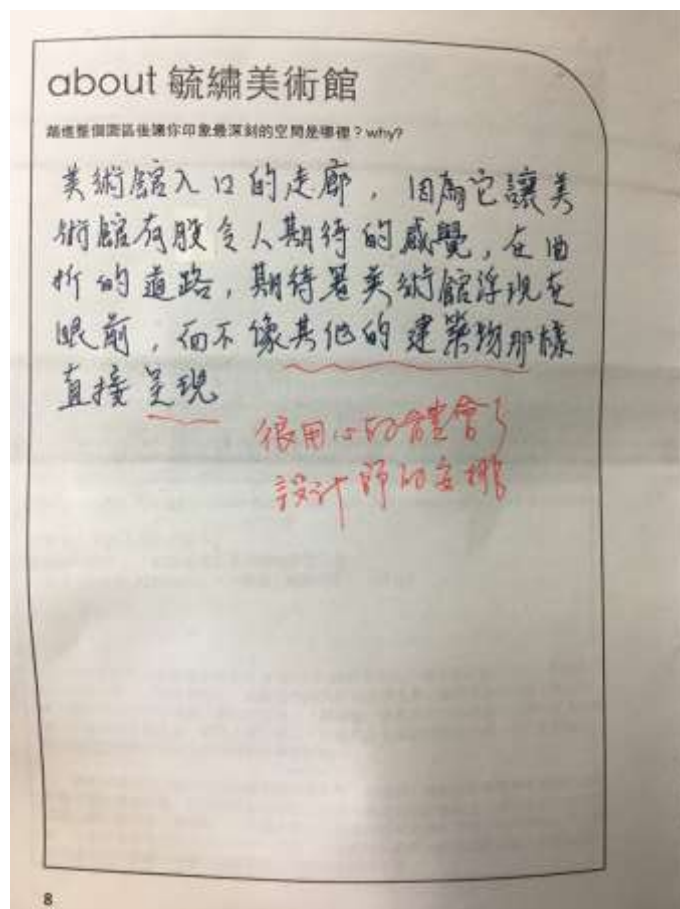 about 毓繡美術館
踏進整個園區後讓你印象最深刻的空間是哪裡？why?
美術館入口的走廊，因為它讓美
術館有股令人期待的感覺，在曲
折的道路，期待著美術館浮現在
眼前，而不像其他的建築物那樣
直接呈現
很用心的體會了
設計師的安排
8